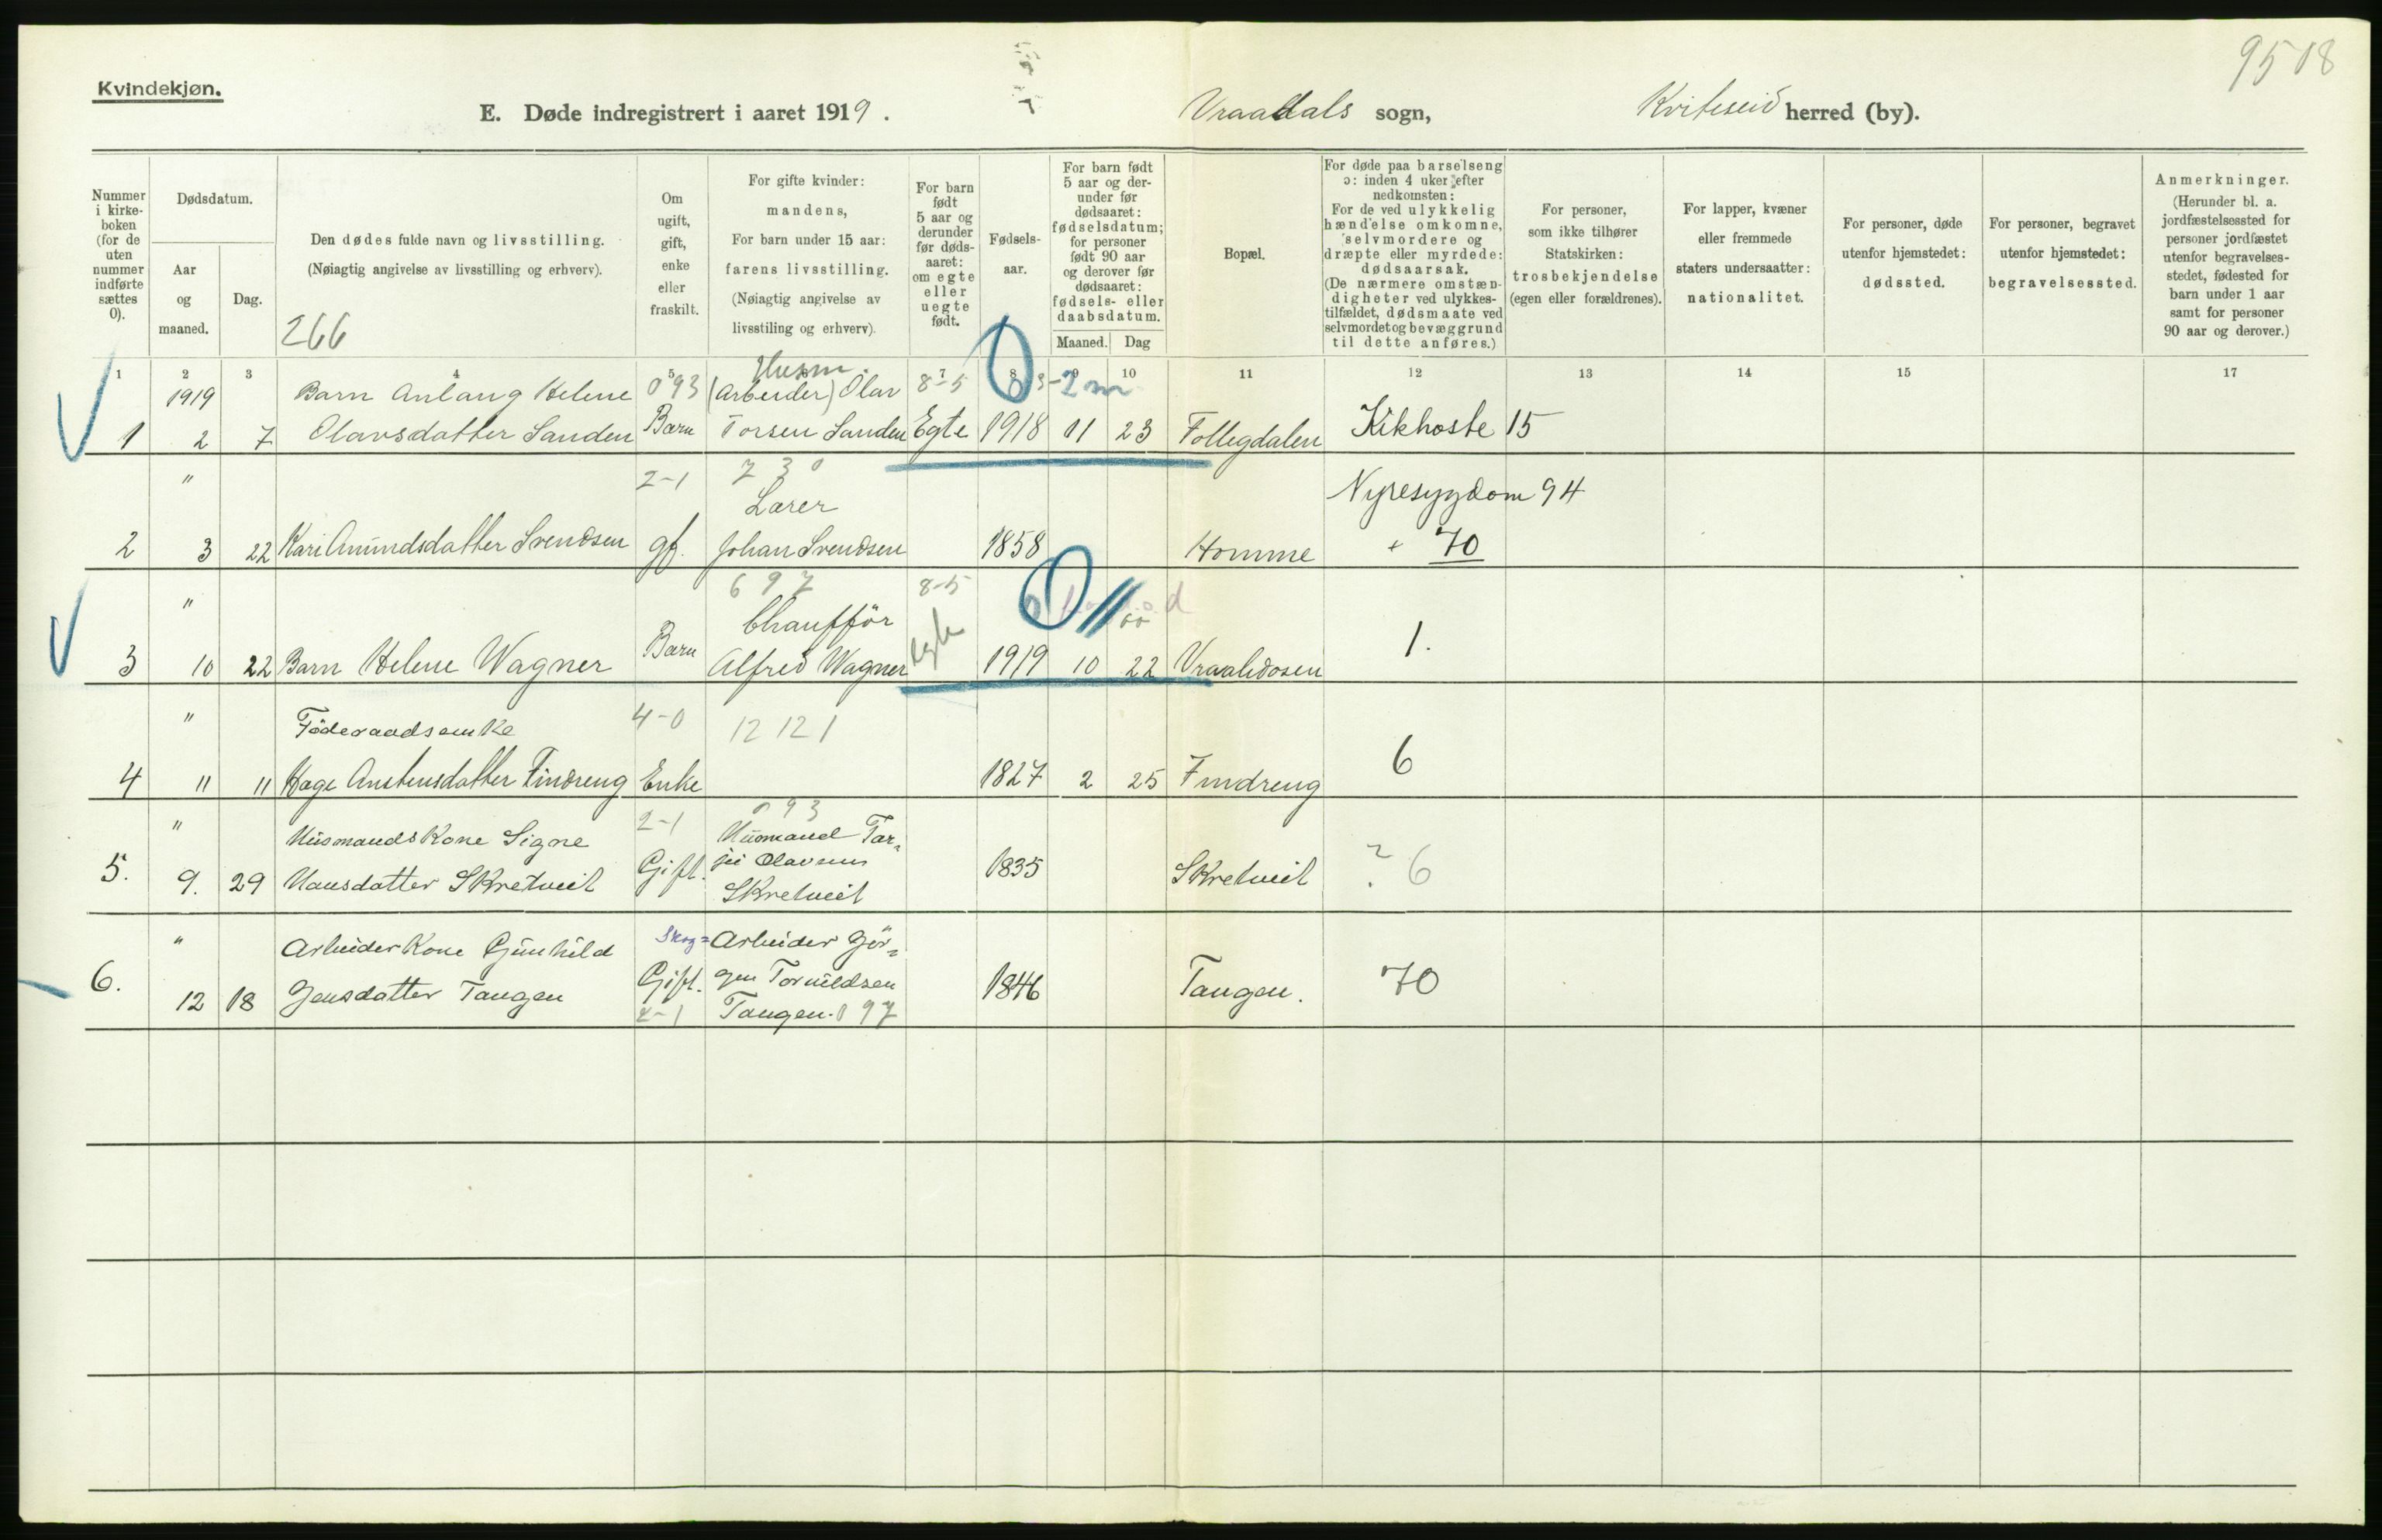 9508
Kvindekjøn.
E. Døde indregistrert i aaret 1919.
Vraadals sogn,
Kviteseid herred (by).
Nummer i kirke- boken (for de uten nummer indførte sættes 0).
Dødsdatum.
Aar og maaned.
Dag.
Den dødes fulde navn og livsstilling.
(Nøiagtig angivelse av livsstilling og erhverv).
266
Om ugift, gift, enke eller fraskilt.
For gifte kvinder:
mandens,
For barn under 15 aar:
farens livsstilling.
(Nøiagtig angivelse av
livsstiling og erhverv).
For barn født 5 aar og derunder før døds- aaret: om egte eller uegte født.
Fødsels- aar.
For barn født 5 aar og der- under før dødsaaret: fødselsdatum; for personer født 90 aar og derover før dødsaaret: fødsels- eller daabsdatum.
Maaned. Dag
Bopæl.
For døde paa barselseng
ɔ: inden 4 uker efter
nedkomsten:
For de ved ulykkelig
hændelse omkomne,
selvmordere og
dræpte eller myrdede:
dødsaarsak.
(De nærmere omstæn-
digheter ved ulykkes-
tilfældet, dødsmaate ved
selvmordet og bevæggrund
til dette anføres.)
For personer,
som ikke tilhører
Statskirken:
trosbekjendelse
(egen eller forældrenes).
For lapper, kvæner
eller fremmede
staters undersaatter:
nationalitet.
For personer, døde
utenfor hjemstedet:
dødssted.
For personer, begravet
utenfor hjemstedet:
begravelsessted.
Anmerkninger.
(Herunder bl. a.
jordfæstelsessted for
personer jordfæstet
utenfor begravelses-
stedet, fødested for
barn under 1 aar
samt for personer
90 aar og derover.)
1 2 3 4 5 7 8 9 10 11 12 13 14 15 17
Husm.
1919 Barn Anlaug Helene 093 (Arbeider) Olav 8-5 2 m
1 2 7 Olavsdatter Sanden Barn Torsen Sanden Egte 1918 11 23 Follegdalen Kikhoste 15
" 2-1 730
Lærer Nyresygdom 94
2 3 22 Kari Amundsdatter Svendsen gf. Johan Svendsen 1858 Homme + 70
" 697 8-5
Chaufför
3 10 22 Barn Helene Wagner Barn Alfred Wagner Egte 1919 10 22 Vraalidosen 1.
" Föderaadsenke 4-0 12 121
4 11 11 Hage Anstensdatter Findreng Enke 1827 2 25 Findreng 6
" 2-1 093
Husmands Kone Signe Husmand Tar-
5. 9. 29 Hansdatter Skretveit Gift. jei Olavsen 1835 Skretveit ? 6
Skretveit
" Arbeider Kone Gunhild Skog= Arbeider Gör-
6. 12 18 Jensdatter Tangen Gift. gen Tovildsen 1846 Tangen. 70
2-1 Tangen. 097